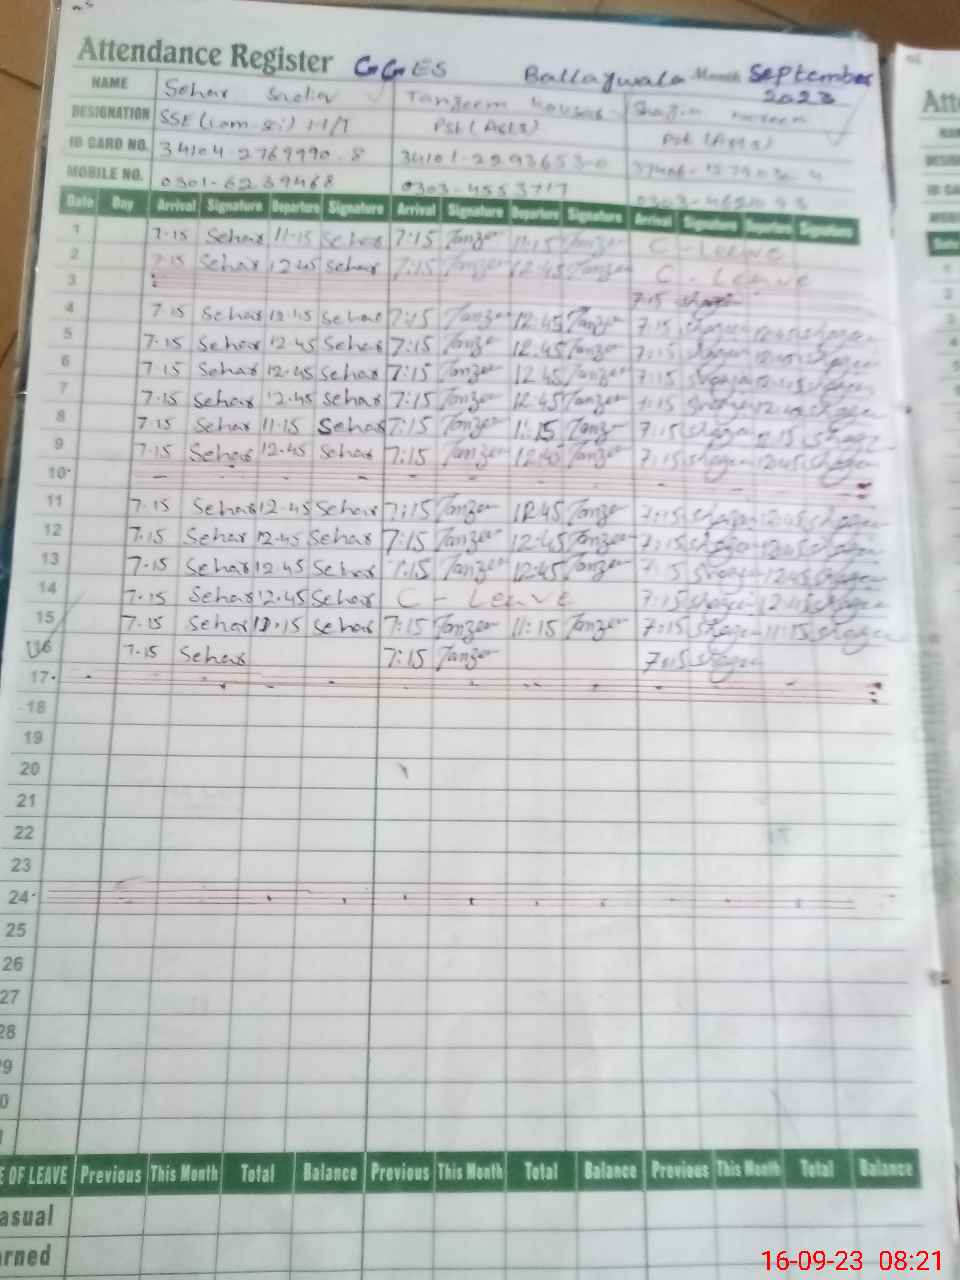 Attendance Register GGES Ballaywala Month September 2023
NAME Sehar Tanzeem Kousar
DESIGNATION SSE (Com. Sci) I/I/T Pst (Acls) Pst
ID CARD NO. 34104-2769990.8 34101-2293653-0
MOBILE NO. 0301-6239468 0303-4553717
Date Day Arrival Signature Departure Signature Arrival Signature Departure Signature Arrival Signature Departure Signature
1 7.15 Sehar 11.15 Sehar 7:15 Tanzee 11:15 Tanzee C - Leave
2 7.15 Sehar 12.45 Sehar 7:15 Tanzee 12:45 Tanzee C - Leave
3 7:15
4 7.15 Sehar 12.45 Sehar 7:15 Tanzee 12:45 Tanzee 7:15 Shazeen 12:45 Shazeen
5 7.15 Sehar 12.45 Sehar 7:15 Tanzee 12:45 Tanzee 7:15 Shazeen 12:45 Shazeen
6 7.15 Sehar 12.45 Sehar 7:15 Tanzee 12:45 Tanzee 7:15 Shazeen 12:45 Shazeen
7 7.15 Sehar 12.45 Sehar 7:15 Tanzee 12:45 Tanzee 7:15 Shazeen 12:45 Shazeen
8 7.15 Sehar 11.15 Sehar 7:15 Tanzee 11:15 Tanzee 7:15 Shazeen 11:15 Shazeen
9 7.15 Sehar 12.45 Sehar 7:15 Tanzee 12:45 Tanzee 7:15 Shazeen 12:45 Shazeen
10
11 7.15 Sehar 12.45 Sehar 7:15 Tanzee 12:45 Tanzee 7:15 Shazeen 12:45 Shazeen
12 7.15 Sehar 12.45 Sehar 7:15 Tanzee 12:45 Tanzee 7:15 Shazeen 12:45 Shazeen
13 7.15 Sehar 12.45 Sehar 7:15 Tanzee 12:45 Tanzee 7:15 Shazeen 12:45 Shazeen
14 7.15 Sehar 12.45 Sehar C - Leave 7:15 Shazeen 12:45 Shazeen
15 7.15 Sehar 11.15 Sehar 7:15 Tanzee 11:15 Tanzee 7:15 Shazeen 11:15 Shazeen
16 7.15 Sehar 7:15 Tanzee 7:15 Shazeen
17
18
19
20
21
22
23
24
25
26
27
28
9
0
E OF LEAVE Previous This Month Total Balance Previous This Month Total Balance Previous This Month Total Balance
asual
rned
16-09-23 08:21